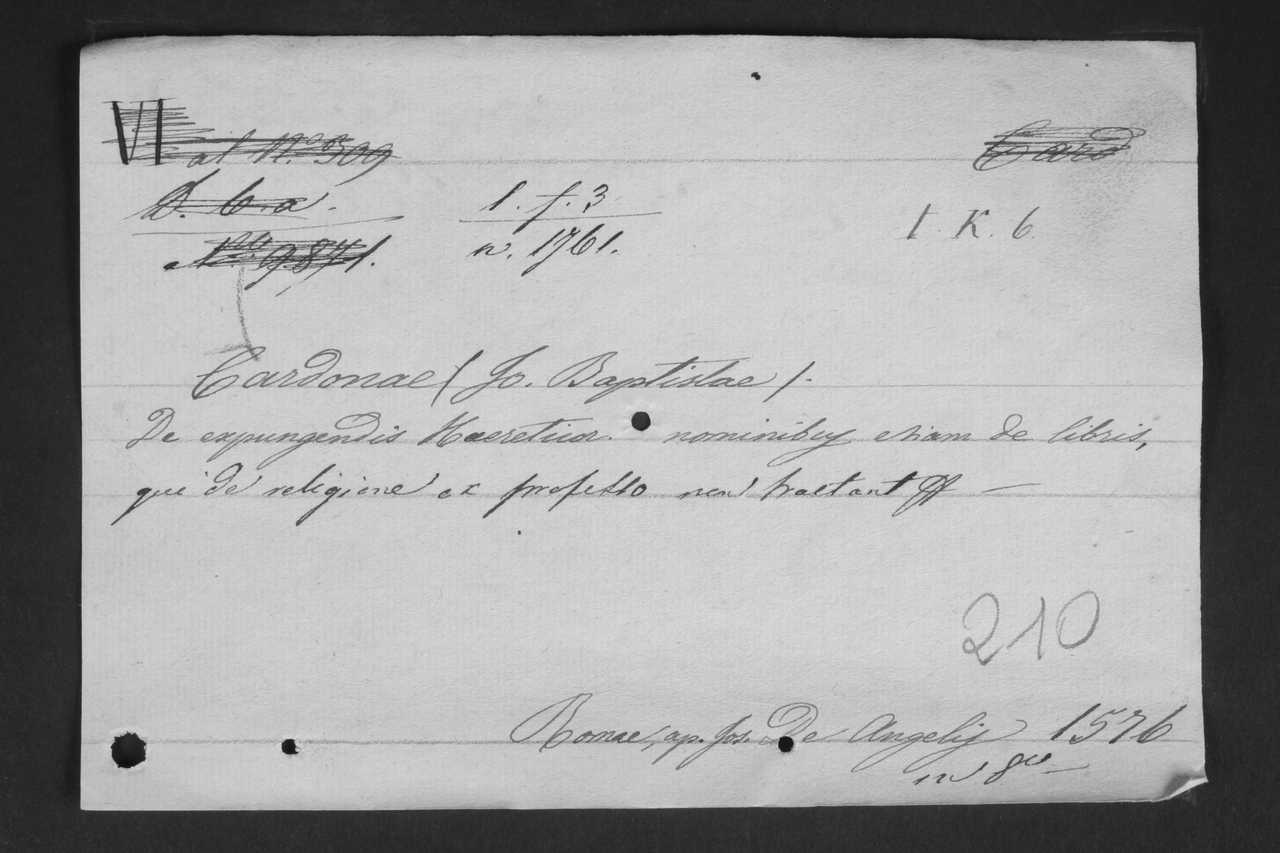 VI al N.º 309
Card
D. b. a.
1. f. 3
1. K. 6.
Nro 9841.
n. 1761.
Cardonae (Jo. Baptistae).
De expungendis Haereticor. nominibus etiam de libris,
qui de religione ex professo non tractant
210
Romae, ap. Jos. De Angelis 1576
in 8vo